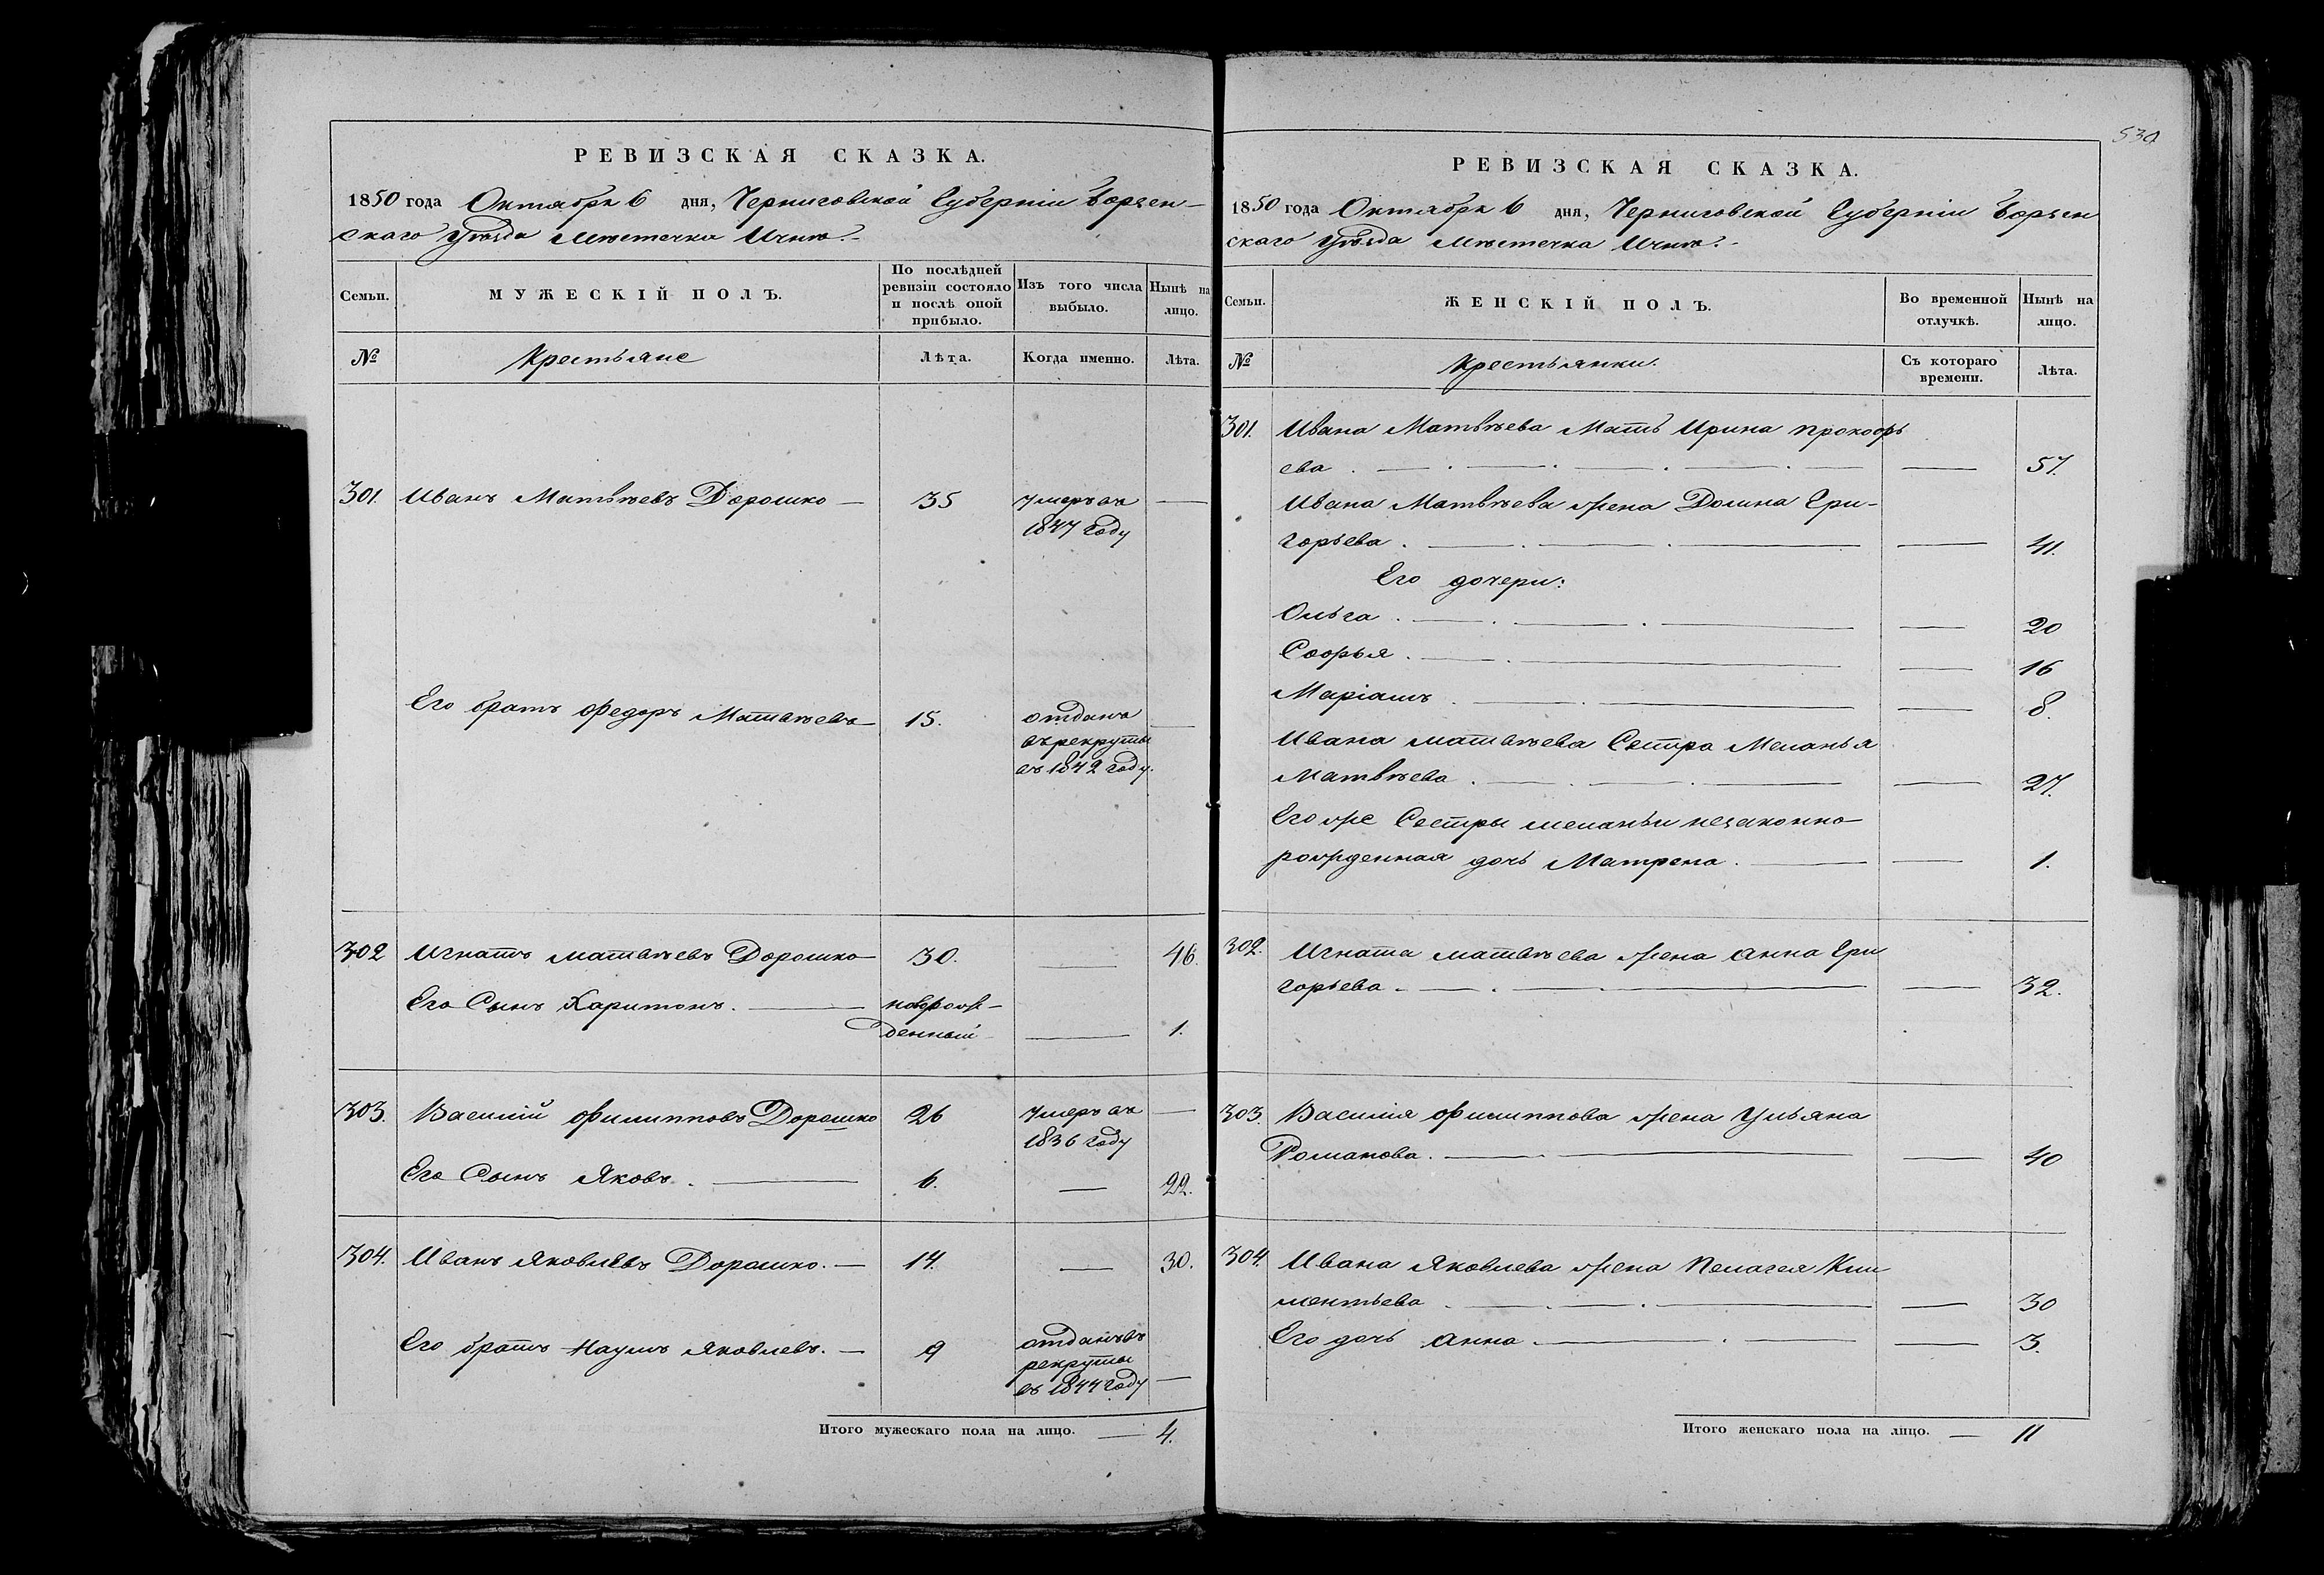 530
РЕВИЗСКАЯ СКАЗКА.
1850 года Октября 6 дня, Черниговской Губерніи Борзен-
скаго Уѣзда Мѣстечка Ични.
Семьи. МУЖЕСКІЙ ПОЛЪ. По послѣдней ревизіи состояло и послѣ оной прибыло. Изъ того числа выбыло. Нынѣ на лицо.
№ Крестьяне Лѣта. Когда именно. Лѣта.
301. Иванъ Матвѣевъ Дорошко — 35 Умеръ въ —
1847 году
Его братъ Федоръ Матвѣевъ — 15. отданъ —
въ рекруты
въ 1842 году.
302 Игнатъ Матвѣевъ Дорошко — 30. — 46.
Его Сынъ Харитонъ. — новорож-
денный — 1.
303. Василій Филипповъ Дорошко 26 Умеръ въ —
1836 году
Его Сынъ Яковъ. — 6. — 22.
304. Иванъ Яковлевъ Дорошко. — 14. — 30.
Его братъ Наумъ Яковлевъ. — 9 отданъ въ
рекруты
въ 1844 году —
Итого мужескаго пола на лицо. — 4.
РЕВИЗСКАЯ СКАЗКА.
1850 года Октября 6 дня, Черниговской Губерніи Борзен
скаго Уѣзда Мѣстечка Ични.
Семьи. ЖЕНСКІЙ ПОЛЪ. Во временной отлучкѣ. Нынѣ на лицо.
№ Крестьянки. Съ котораго времени. Лѣта.
301. Ивана Матвѣева Мать Ирина Прокофь
ева . — 57.
Ивана Матвѣева жена Домна Гри-
горьева . — 41.
Его дочери:
Ольга . — 20
Софья . — 16
Маріамъ . — 8.
Ивана Матвѣева Сестра Меланья
Матвѣева . — 27.
Его же Сестры Меланьи незаконно
рожденная дочь Матрена . — 1.
302. Игната Матвѣева жена Анна Гри
горьева — 32.
303. Василія Филиппова жена Ульяна
Романова. — 40
304. Ивана Яковлева жена Пелагея Кли
ментьева . — 30
Его дочь Анна — 3.
Итого женскаго пола на лицо. — 11